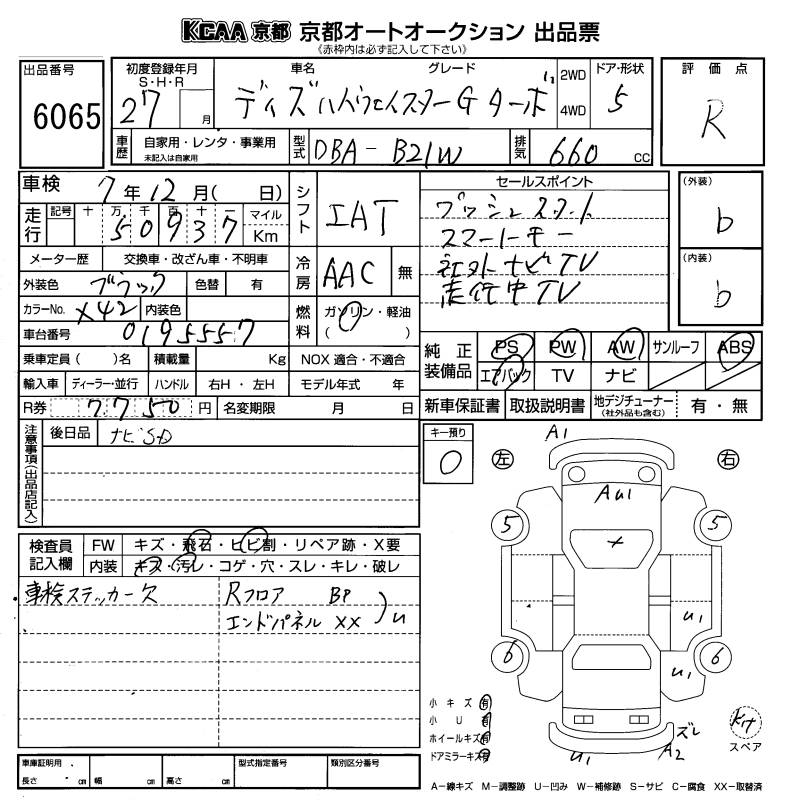 KCAA 京都 京都オートオークション 出品票
《赤枠内は必ず記入して下さい》
出品番号
6065
初度登録年月
S・H・R
27 月
車名 グレード
デイズハイウェイスターG ターボ
2WD
4WD
ドア・形状
5
評価点
R
車歴
自家用・レンタ・事業用
未記入は自家用
型式
DBA-B21W
排気
660 cc
車検 7年12月( 日)
走行
記号 十 万 千 百 十 一
5 0 9 3 7
マイル
Km
シフト
IAT
メーター歴 交換車・改ざん車・不明車
外装色 ブラック 色替 有
冷房
AAC 無
カラーNo. X42 内装色
燃料
ガソリン・軽油
( )
車台番号 0195557
乗車定員( )名 積載量 Kg NOX適合・不適合
輸入車 ディーラー・並行 ハンドル 右H・左H モデル年式 年
R券 7750円 名変期限 月 日
セールスポイント
プッシュスタート
スマートキー
社外ナビTV
走行中TV
(外装)
b
(内装)
b
純正装備品
PS PW AW サンルーフ ABS
エアバック TV ナビ
新車保証書 取扱説明書 地デジチューナー(社外品も含む) 有・無
注意事項(出品店記入)
後日品 ナビSD
キー預り
0
検査員記入欄
FW キズ・飛石・ヒビ割・リペア跡・X要
内装 キズ・汚レ・コゲ・穴・スレ・キレ・破レ
車検ステッカー欠
Rフロア BP
エンドパネル XX
u
A1
左 右
AU1
5 5
X
U1
6 6
U1
小キズ 有
小U 有
ホイールキズ 有
ドアミラーキズ 有
U1
ズレ
A2
キット
スペア
車庫証明用
長さ cm 幅 cm 高さ cm
型式指定番号 類別区分番号
A-線キズ M-調整跡 U-凹み W-補修跡 S-サビ C-腐食 XX-取替済